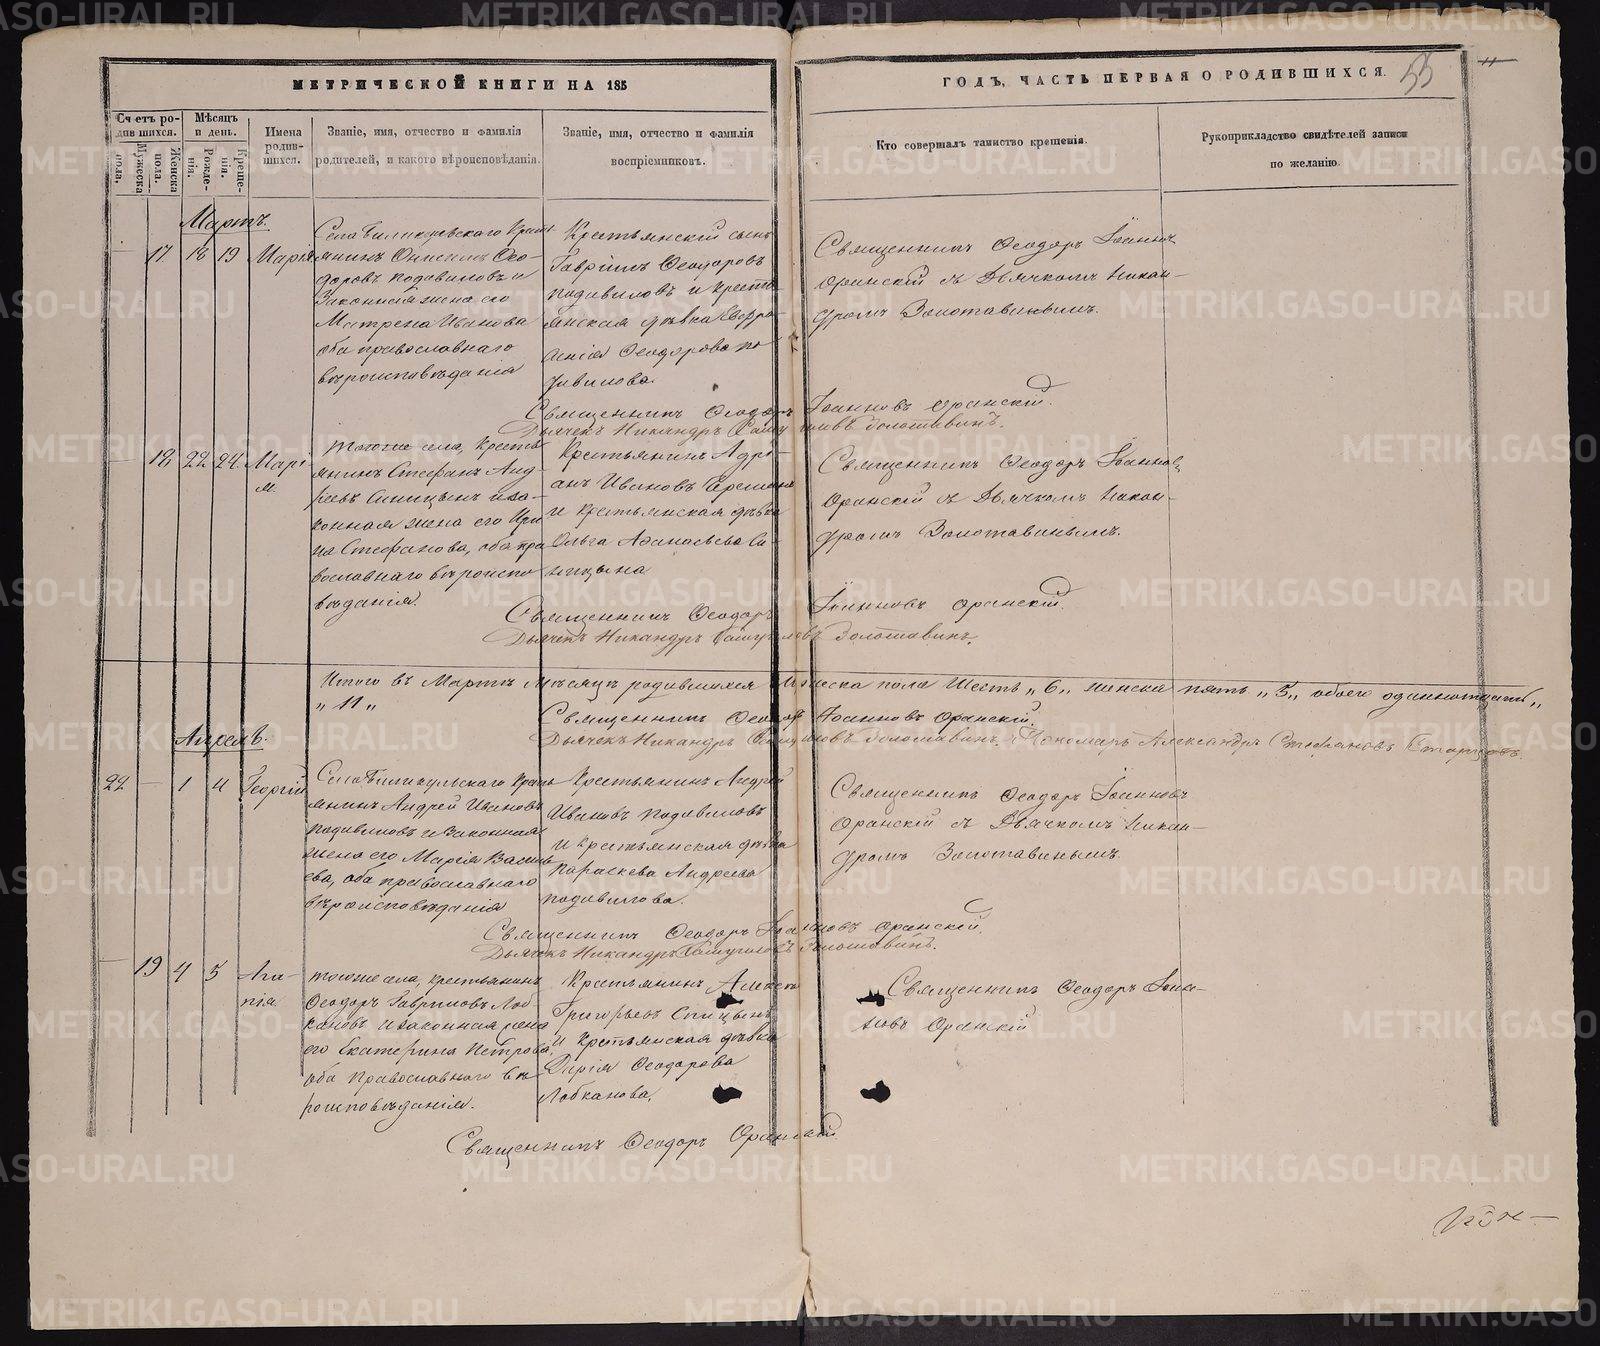 МЕТРИЧЕСКОЙ КНИГИ НА 185
ГОДЪ, ЧАСТЬ ПЕРВАЯ О РОДИВШИХСЯ.
55
Счетъ родившихся.
Мужеска пола.
Женска пола.
Мѣсяцъ и день.
Рожденія.
Крещенія.
Имена родившихся.
Званіе, имя, отчество и фамилія
родителей, и какого вѣроисповѣданія.
Званіе, имя, отчество и фамилія
воспріемниковъ.
Кто совершалъ таинство крещенія.
Рукоприкладство свидѣтелей записи
по желанію.
Мартъ.
17 18 19 Марія
Села Крестьянинъ
Ѳеодоровъ Подавиловъ и
Законная жена его
Матрена Иванова
оба православнаго
вѣроисповѣданія
Крестьянскій сынъ
Гавріилъ Ѳеодоровъ
Подавиловъ и крестьянская
дѣвка
Ѳеодорова
Священникъ Ѳеодоръ Іоанновъ
Оранскій съ Дьячкомъ Никандромъ
Золотавинымъ.
Священникъ Ѳеодоръ Іоанновъ Оранскій.
Дьячекъ Никандръ Самуиловъ Золотавинъ.
18 22 24 Марія
Тогоже села, крестьянинъ
Стефанъ Андреевъ
Синицынъ и законная
жена его Ирина
Стефанова, оба православнаго
вѣроисповѣданія.
Крестьянинъ Адріанъ
Ивановъ
и крестьянская дѣвка
Ольга Аѳанасьева Синицына
Священникъ Ѳеодоръ Іоанновъ
Оранскій съ Дьячкомъ Никандромъ
Золотавинымъ.
Священникъ Ѳеодоръ Іоанновъ Оранскій.
Дьячекъ Никандръ Самуиловъ Золотавинъ.
Итого въ Мартѣ Мѣсяцѣ родившихся Мужеска пола Шесть „6„ женска пять „5„ обоего одиннотцать„
„11„
Священникъ Ѳеодоръ Іоанновъ Оранскій.
Дьячекъ Никандръ Самуиловъ Золотавинъ. Пономарь Александръ Стефановъ
Апрель.
22 — 1 4 Георгій
Села Крестьянинъ
Андрей Ивановъ
Подавиловъ и Законная
жена его Марія Васильева,
оба православнаго
вѣроисповѣданія
Крестьянинъ Андрей
Ивановъ Подавиловъ
и крестьянская дѣвка
Параскева Андреева
Подавилова.
Священникъ Ѳеодоръ Іоанновъ
Оранскій съ Дьячкомъ Никандромъ
Золотавинымъ.
Священникъ Ѳеодоръ Іоанновъ Оранскій.
Дьячекъ Никандръ Самуиловъ Золотавинъ.
— 19 4 5 Агапія
Тогоже села, крестьянинъ
Ѳеодоръ Гавриловъ Лобкановъ
и законная жена
его Екатерина Петрова,
оба Православнаго вѣроисповѣданія.
Крестьянинъ
Григорьевъ
и Крестьянская дѣвка
Дарія Ѳеодорова
Лобканова.
Священникъ Ѳеодоръ Іоанновъ
Оранскій
Священникъ Ѳеодоръ Оранскій.
METRIKI.GASO-URAL.RU